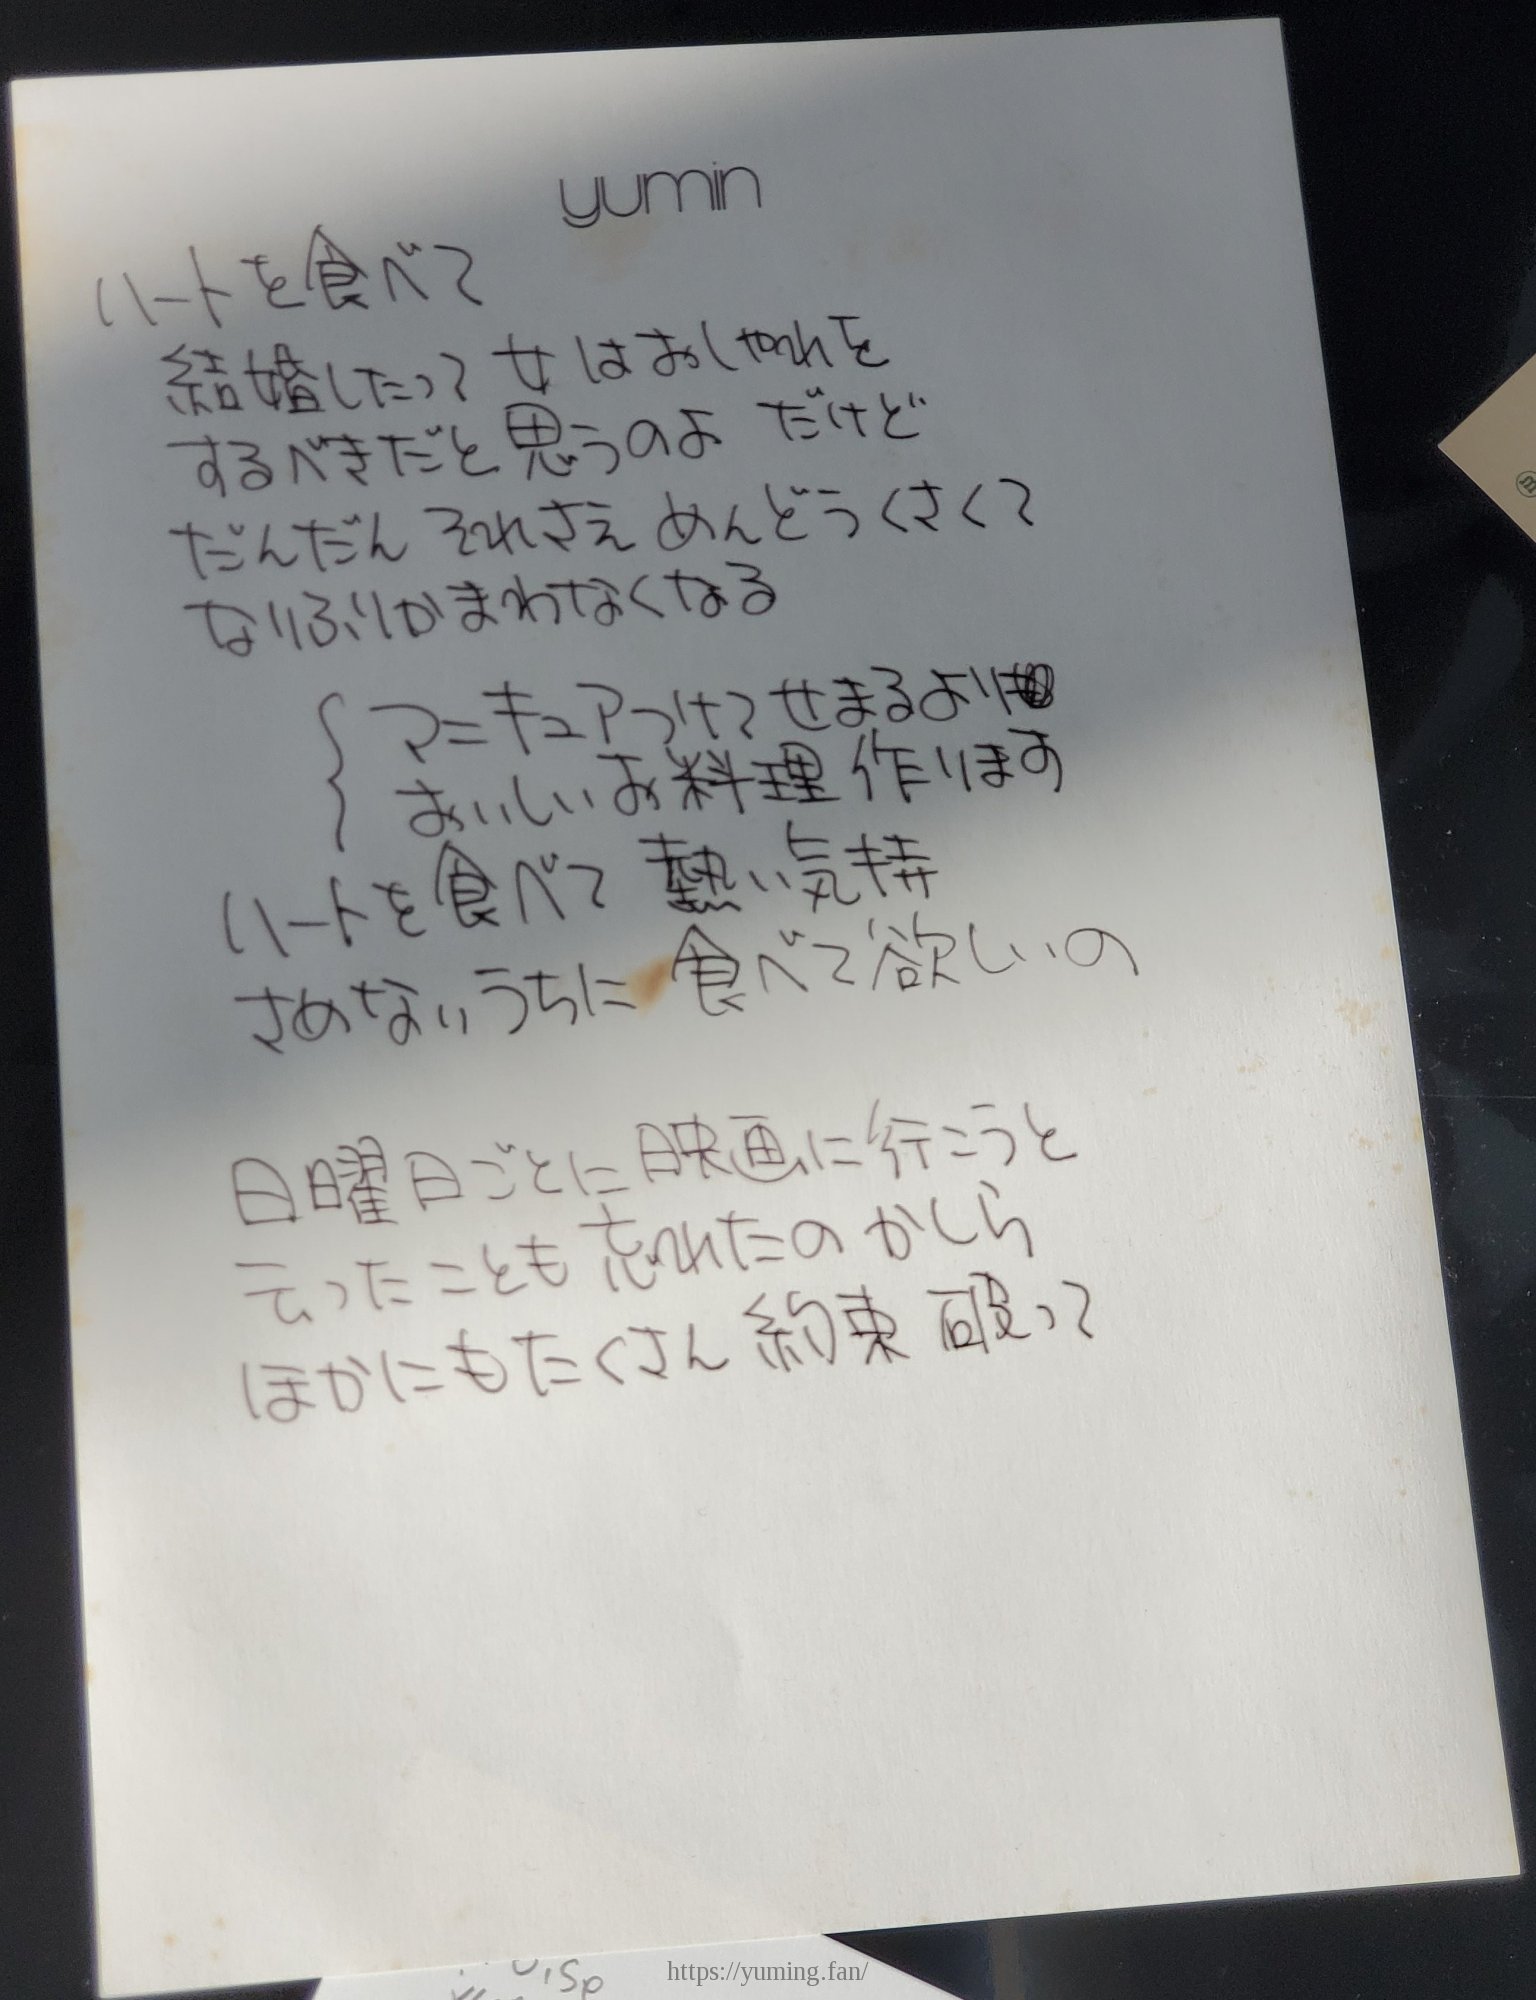 yumin
ハートを食べて
結婚したって 女はおしゃれを
するべきだと思うのよ だけど
だんだん それさえ めんどうくさくて
なりふりかまわなくなる
マニキュアつけて せまるより
おいしいお料理 作ります
ハートを食べて 熱い気持
さめないうちに 食べて欲しいの
日曜日ごとに映画に行こうと
云ったことも忘れたのかしら
ほかにもたくさん 約束 破って
https://yuming.fan/